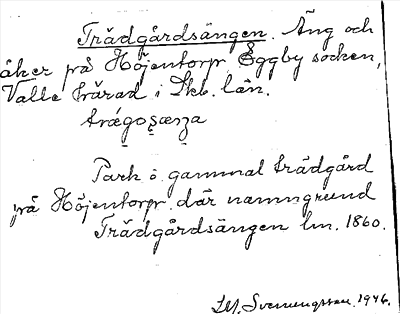 Trädgårdsängen. Äng och
åker på Höjentorp Eggby socken,
Valle härad i Skb. län.
trǽgoʂæŋa
Park o. gammal trädgård
på Höjentorp, där namngrund
Trädgårdsängen lm. 1860.
Svenungsson. 1946.